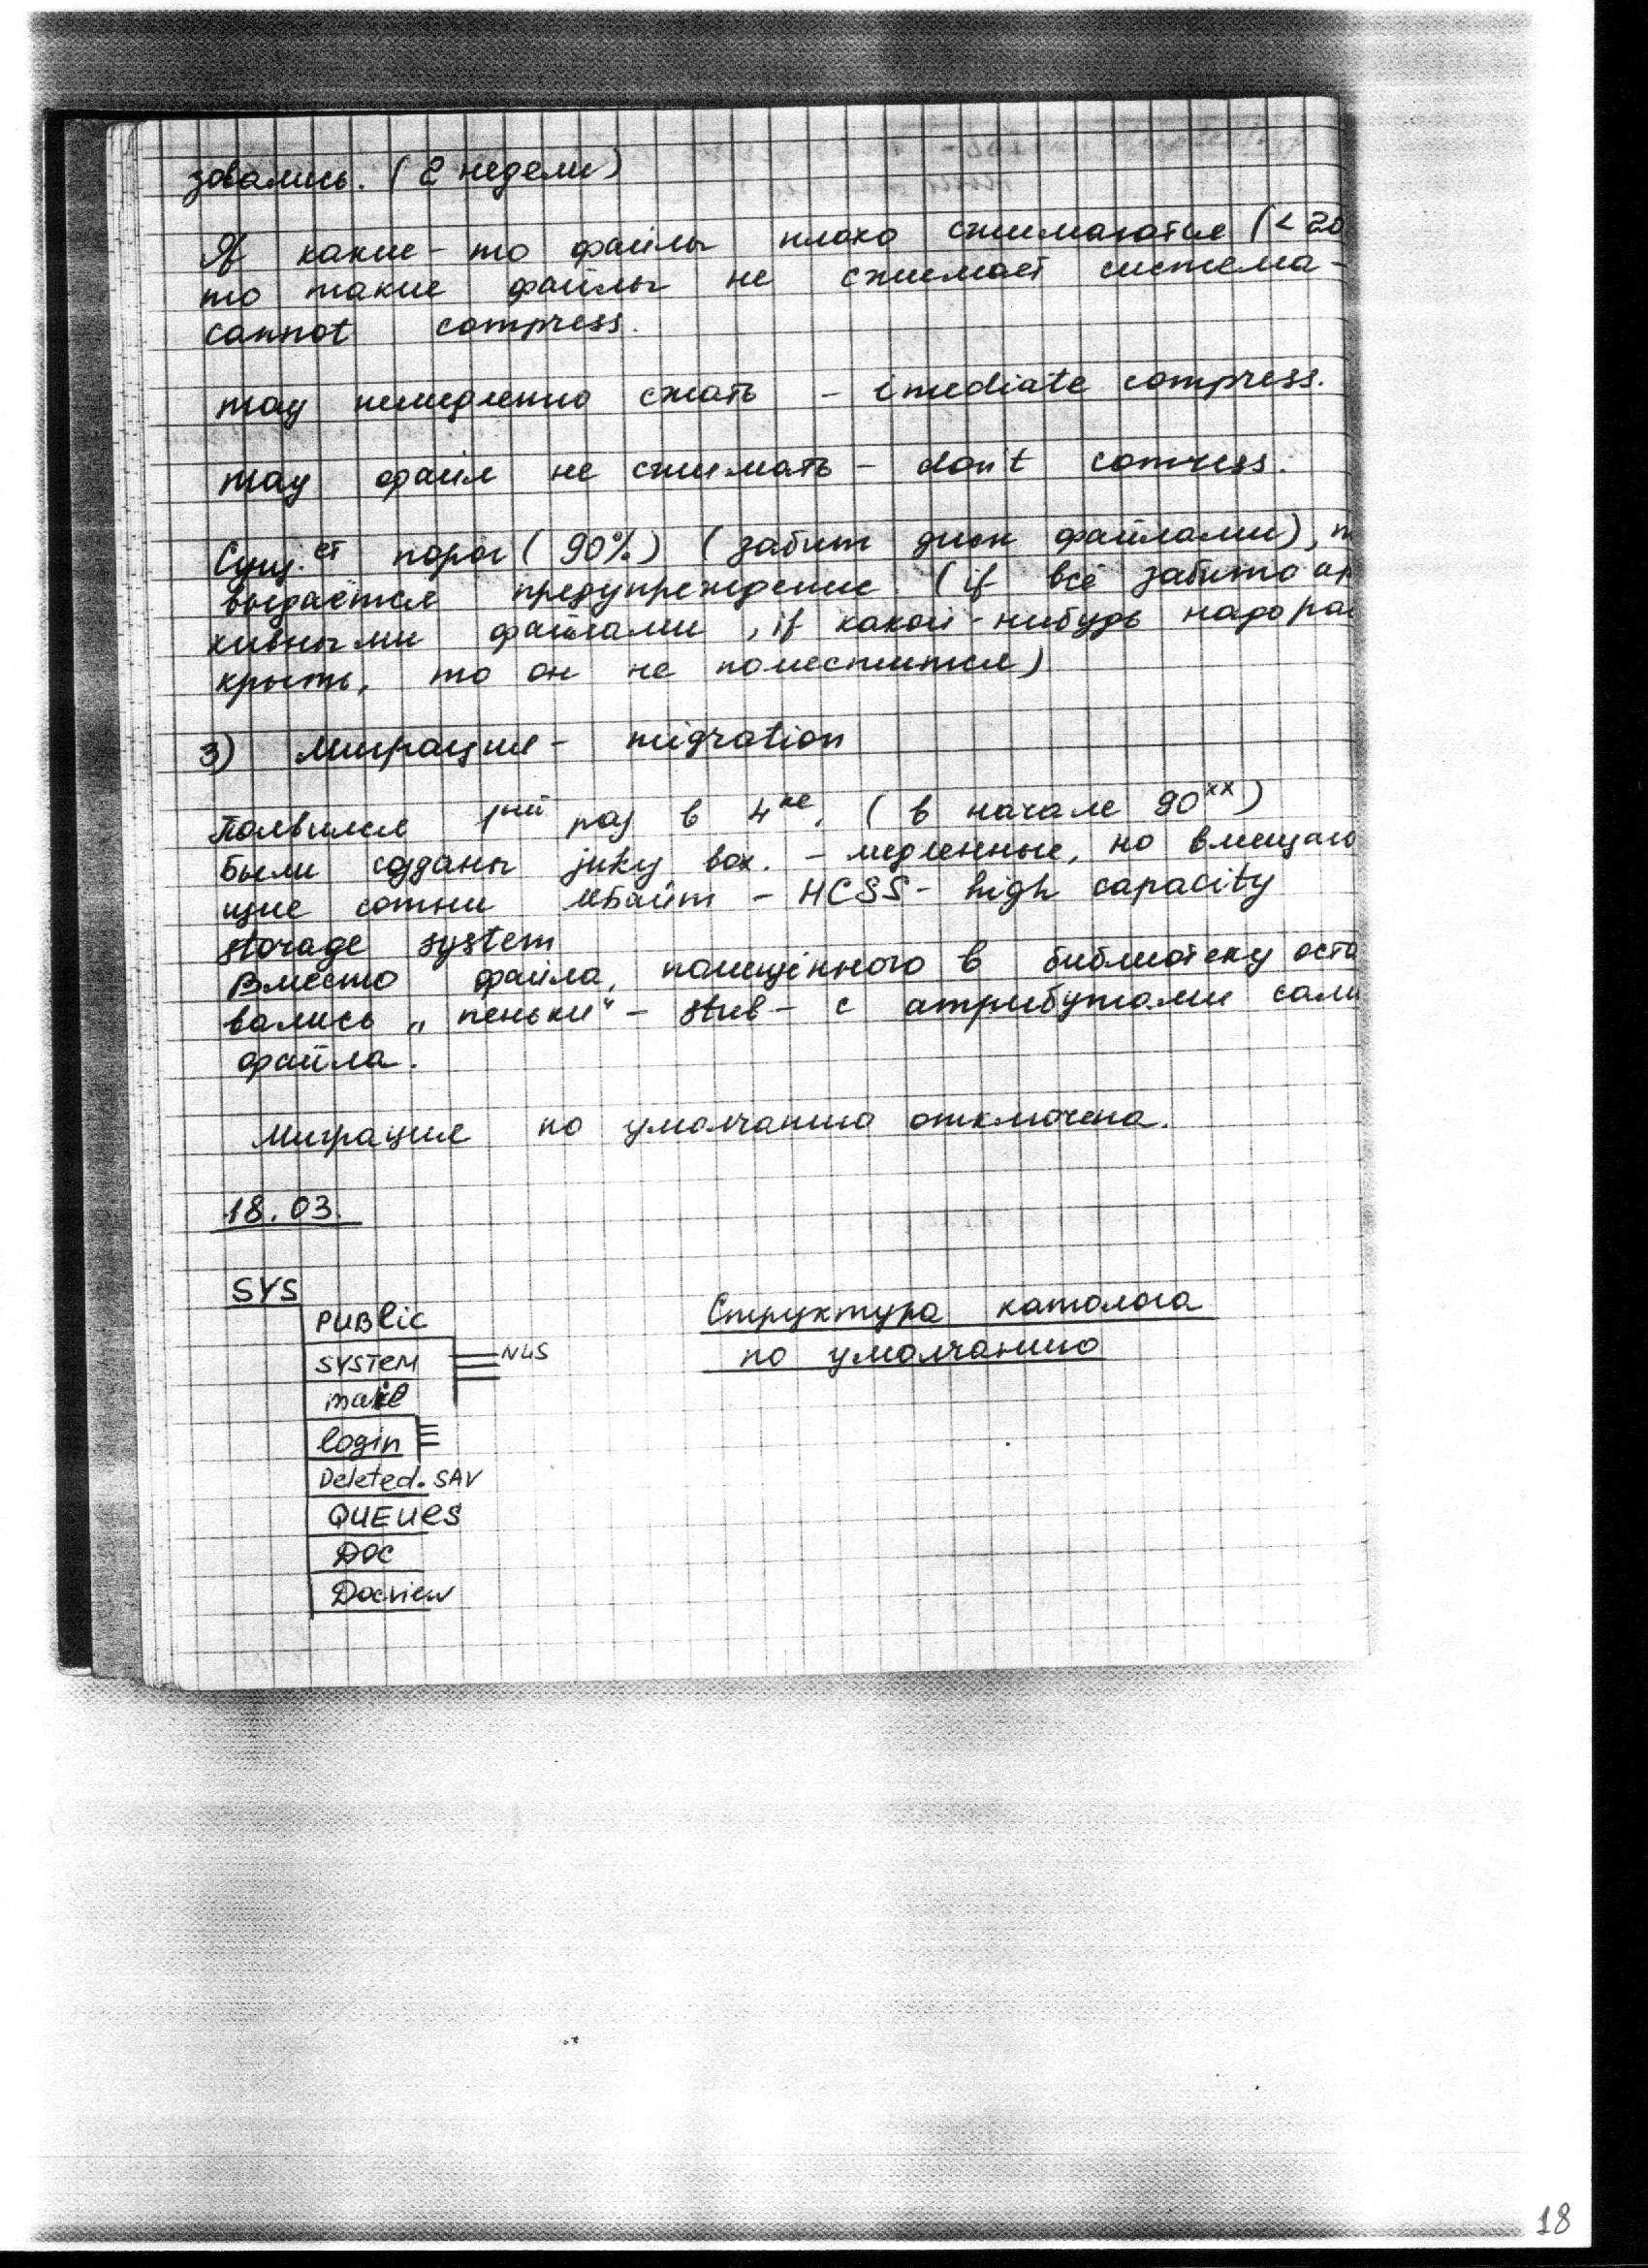 зовались. (2 недели)
If какие-то файлы плохо сжимаются (< 20
то такие файлы не сжимает система -
cannot compress.
may немедленно сжать - imediate compress.
may файл не сжимать - don't comress.
Сущ.ет порог (90%) (забит диск файлами), т
выдаётся предупреждение. (if всё забито ар
хивными файлами, if какой-нибудь надо рас
крыть, то он не поместится)
3) Миграция - migration
Появился 1ый раз в 4ке. (в начале 90хх)
были созданы juky box. - медленные, но вмещаю
щие сотни Мбайт - HCSS - high capacity
storage system
Вместо файла, помещённого в библиотеку оста
вались „пеньки“ - stub - с атрибутами сами
файла.
Миграция по умолчанию отключена.
18.03.
SYS
PUBlic
SYSTEM
NLS
mail
login
Deleted.SAV
QUEUES
DOC
Docview
Структура каталога
по умолчанию
18